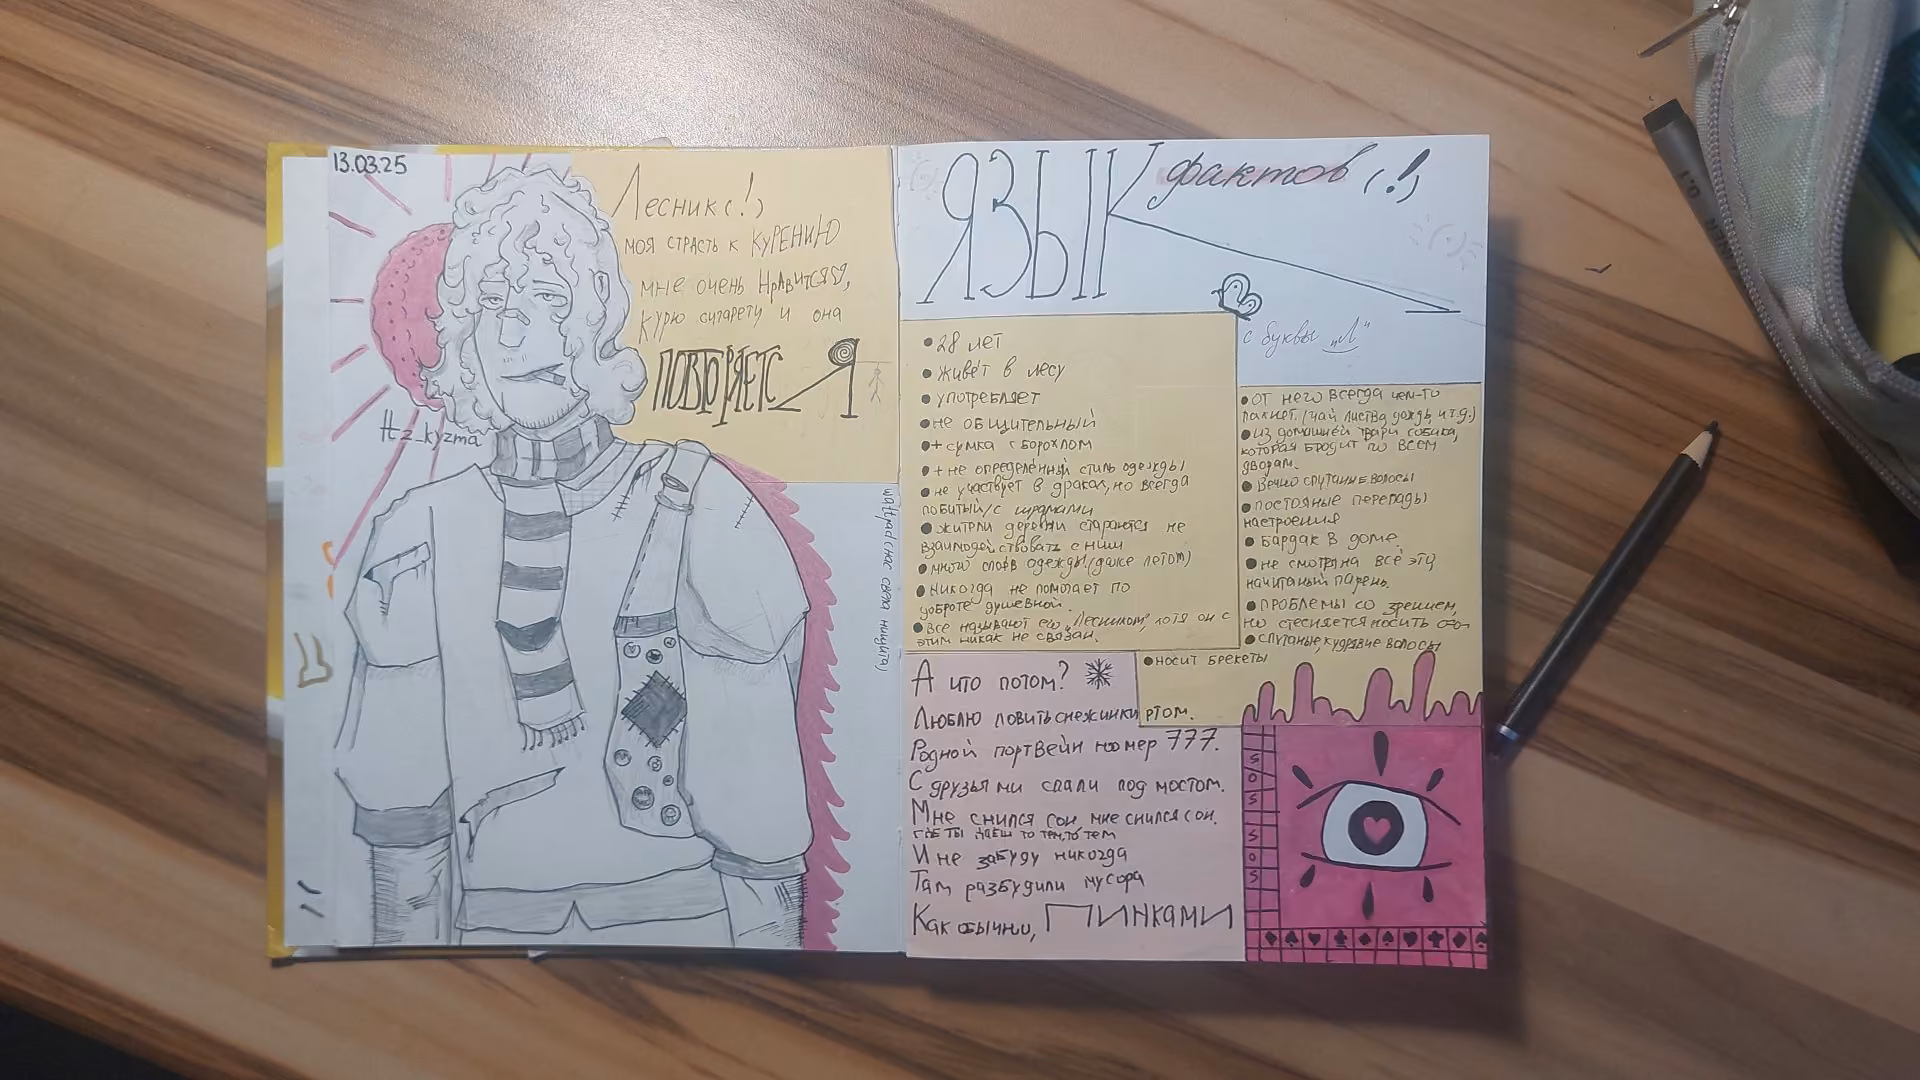 13.03.25
Лесник(!)
моя страсть к КУРЕНИЮ
мне очень нравитсяЯ,
курю сигарету и она
ПОВТОРЯЕТСЯ
Hz_kyzma
ЯЗЫК фактов (!)
с буквы „Л"
• 28 лет
• живёт в лесу
• употребляет
• не общительный
• + сумка с борохлом
• + не определённый стиль одежды
• не участвует в драках, но всегда
побитый/с шрамами
• жители деревни стараются не
взаимодействовать с ним
• много слоёв одежды! (даже летом)
• Никогда не помогает по
доброте душевной.
• Все называют его „Лесником", хотя он с
этим никак не связан.
• от него всегда чем-то
пахнет. (чай, листва, дождь, и т.д.)
• из домашней твари собака,
которая бродит по всем
дворам.
• Вечно спутаные волосы
• постояные перепады
настроения
• Бардак в доме.
• не смотря на всё эту
начитаный парень.
• проблемы со зрением,
но стесняется носить
• спутаные, кудрявые волосы
• носит брекеты
А что потом?
Люблю ловить снежинки ртом.
Родной портвейн номер 777.
С друзьями спали под мостом.
Мне снился сон, мне снился сон.
И не забуду никогда
Там разбудили мусора
Как обычно, ПИНКАМИ
S
O
S
S
O
S